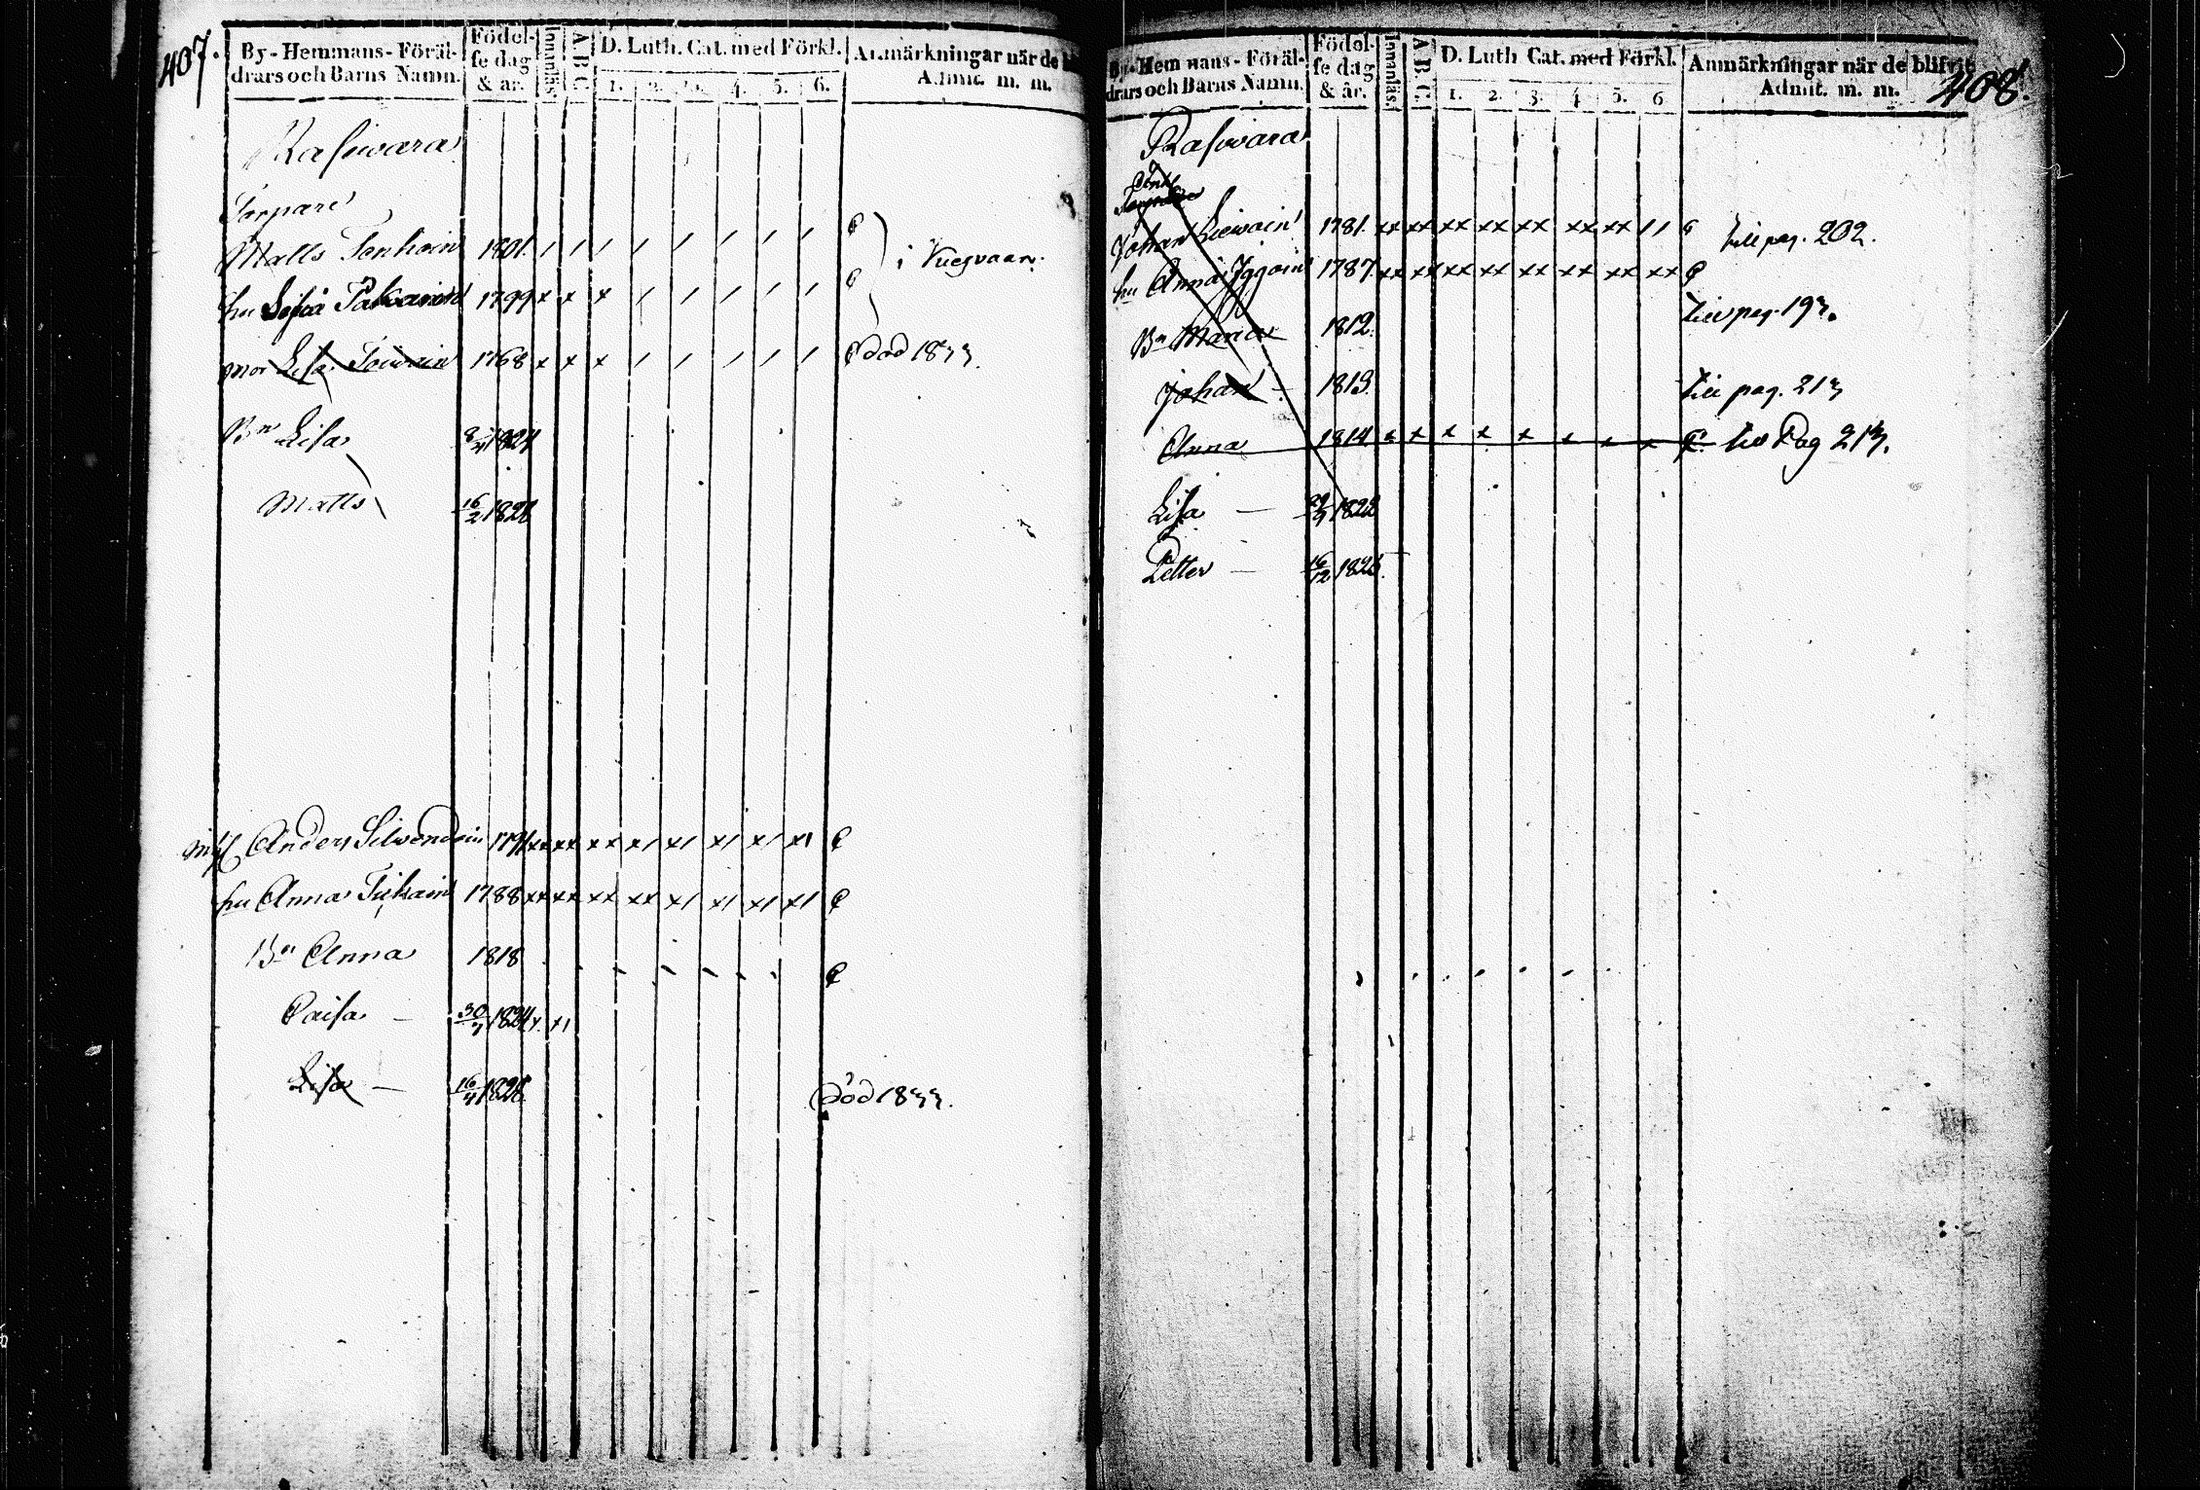 407.
By-Hemmans-Föräl-
drars och Barns Namn.
Födel-
se dag
& år.
Innanläs.
A B C
D. Luth. Cat. med Förkl.
1. 2. 3. 4. 5. 6.
Anmärkningar när de
Admit. m. m.
Rasiwara
Torpare
Matts Tenhoin 1801. / / / / / / / /
i Kuesvaara
hu Lisa Pakarin 1799 x x x / / / / /
mor Lisa Toiwain 1768 x x x / / / / / död 1833.
Bn Lisa 1824
Matts 16/2 1828
Anders Silwendoin 1791 xx xx xx x/ x/ x/ x/ x/
hu Anna Tiikain 1788 xx xx xx xx x/ x/ x/ x/
Bn Anna 1818
Caisa — 30/7 1824 x x/
Lisa — 16/4 1828 död 1833.
By-Hemmans-Föräl-
drars och Barns Namn.
Födel-
se dag
& år.
Innanläs.
A B C
D. Luth Cat. med Förkl.
1. 2. 3. 4. 5. 6
Anmärkningar när de blifvit
Admit. m. m.
408.
Rasiwara
Enkl
Johan Liewoin 1781. xx xx xx xx xx xx xx / / till pag. 202.
hu Anna Iggoin 1787 xx xx xx xx xx xx xx xx
Bn Maria 1812. till pag. 193.
Johan — 1813. till pag. 213
Anna 1814 x x x x x x x x till Pag 213.
Lisa — 1822
Petter — 16/12 1826.